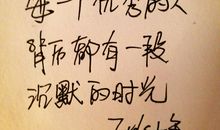 每一个优秀的人
背后都有一段
沉默的时光